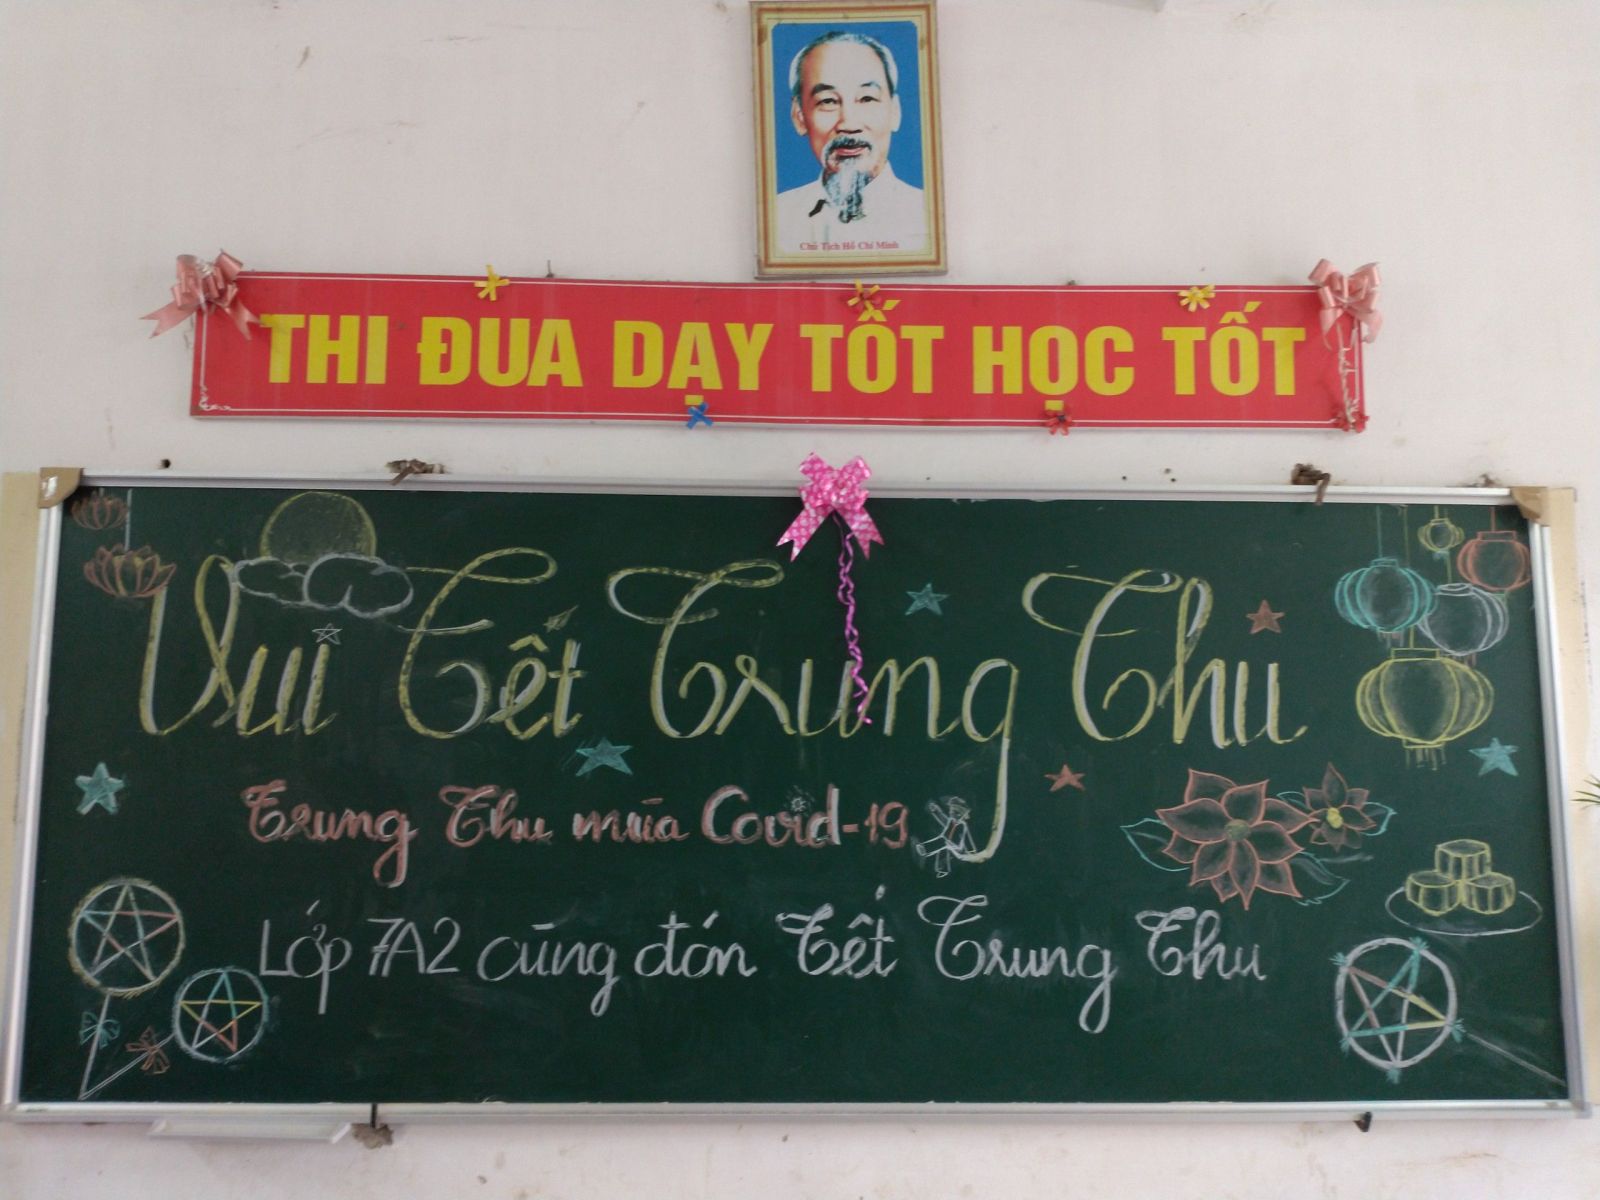 Chủ Tịch Hồ Chí Minh
THI ĐUA DẠY TỐT HỌC TỐT
Vui Tết Trung Thu
Trung Thu mùa Covid-19
Lớp 7A2 cùng đón Tết Trung Thu